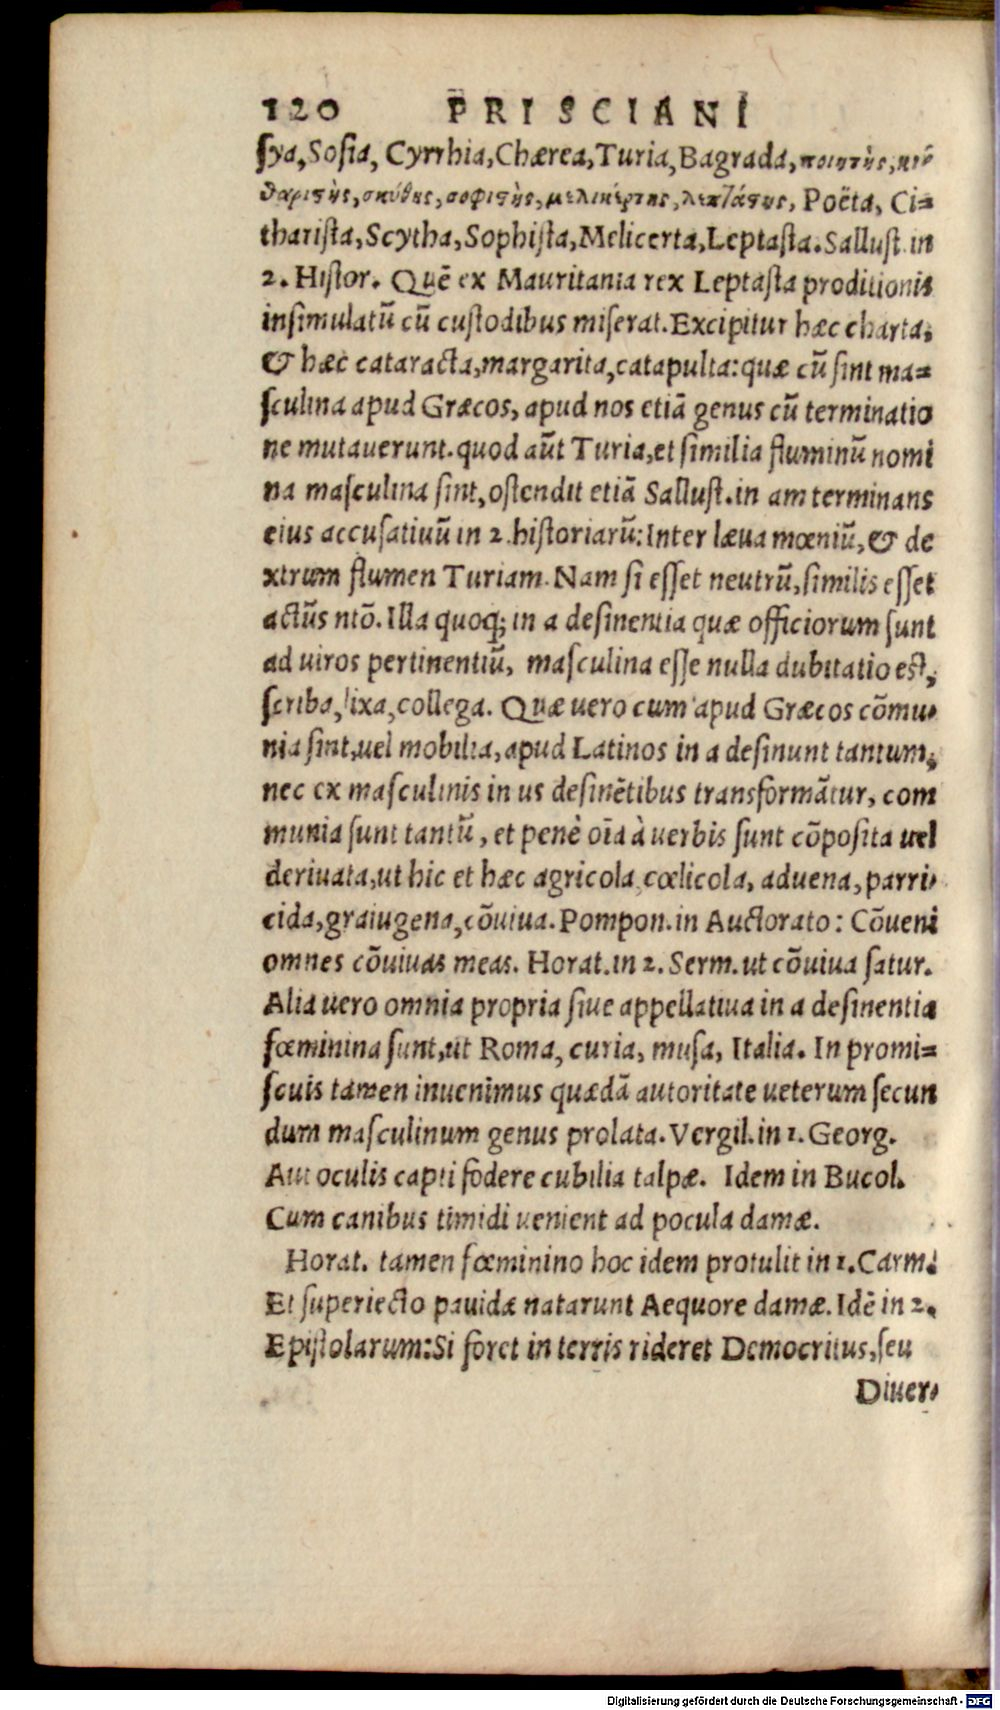 120 PRISCIANI
ſya, Sosia, Cyrrhia, Chærea, Turia, Bagrada, ποιητὴς, κι
θαριστὴς, σκύθης, σοφιστὴς, μελικέρτης, λεπτάστης, Poëta, Ci=
thariſta, Scytha, Sophiſta, Melicerta, Leptaſta. Salluſt. in
2. Hiſtor. Quē ex Mauritania rex Leptaſta proditionis
inſimulatū cū cuſtodibus miſerat. Excipitur hæc charta,
& hæc cataracta, margarita, catapulta: quæ cū ſint ma=
ſculina apud Græcos, apud nos etiā genus cū terminatio
ne mutauerunt. quod aūt Turia, et ſimilia fluminū nomi
na maſculina ſint, oſtendit etiā Salluſt. in am terminans
eius accuſatiuū in 2. hiſtoriarū: Inter læua mœniū, & de
xtrum flumen Turiam. Nam ſi eſſet neutrū, ſimilis eſſet
actūs ntō. Illa quoq; in a deſinentia quæ officiorum ſunt
ad uiros pertinentiū, maſculina eſſe nulla dubitatio eſt,
ſcriba, lixa, collega. Quæ uero cum apud Græcos cōmu-
nia ſint, uel mobilia, apud Latinos in a deſinunt tantum,
nec ex maſculinis in us deſinētibus transformātur, com
munia ſunt tantū, et penè oīa à uerbis ſunt cōpoſita uel
deriuata, ut hic et hæc agricola, cœlicola, aduena, parri-
cida, graiugena, cōuiua. Pompon. in Auctorato: Cōueni
omnes cōuiuas meas. Horat. in 2. Serm. ut cōuiua ſatur.
Alia uero omnia propria ſiue appellatiua in a deſinentia
fœminina ſunt, ut Roma, curia, muſa, Italia. In promi=
ſcuis tamen inuenimus quædā autoritate ueterum ſecun
dum maſculinum genus prolata. Vergil. in 1. Georg.
Aut oculis capti fodere cubilia talpæ. Idem in Bucol.
Cum canibus timidi uenient ad pocula damæ.
Horat. tamen fœminino hoc idem protulit in 1. Carm.
Et ſuperiecto pauidæ natarunt Aequore damæ. Idē in 2.
Epiſtolarum: Si foret in terris rideret Democritus, ſeu
Diuer-
Digitalisierung gefördert durch die Deutsche Forschungsgemeinschaft - DFG